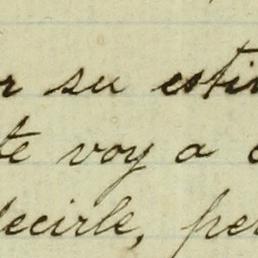 r su esti
te voy a c
decirle, per